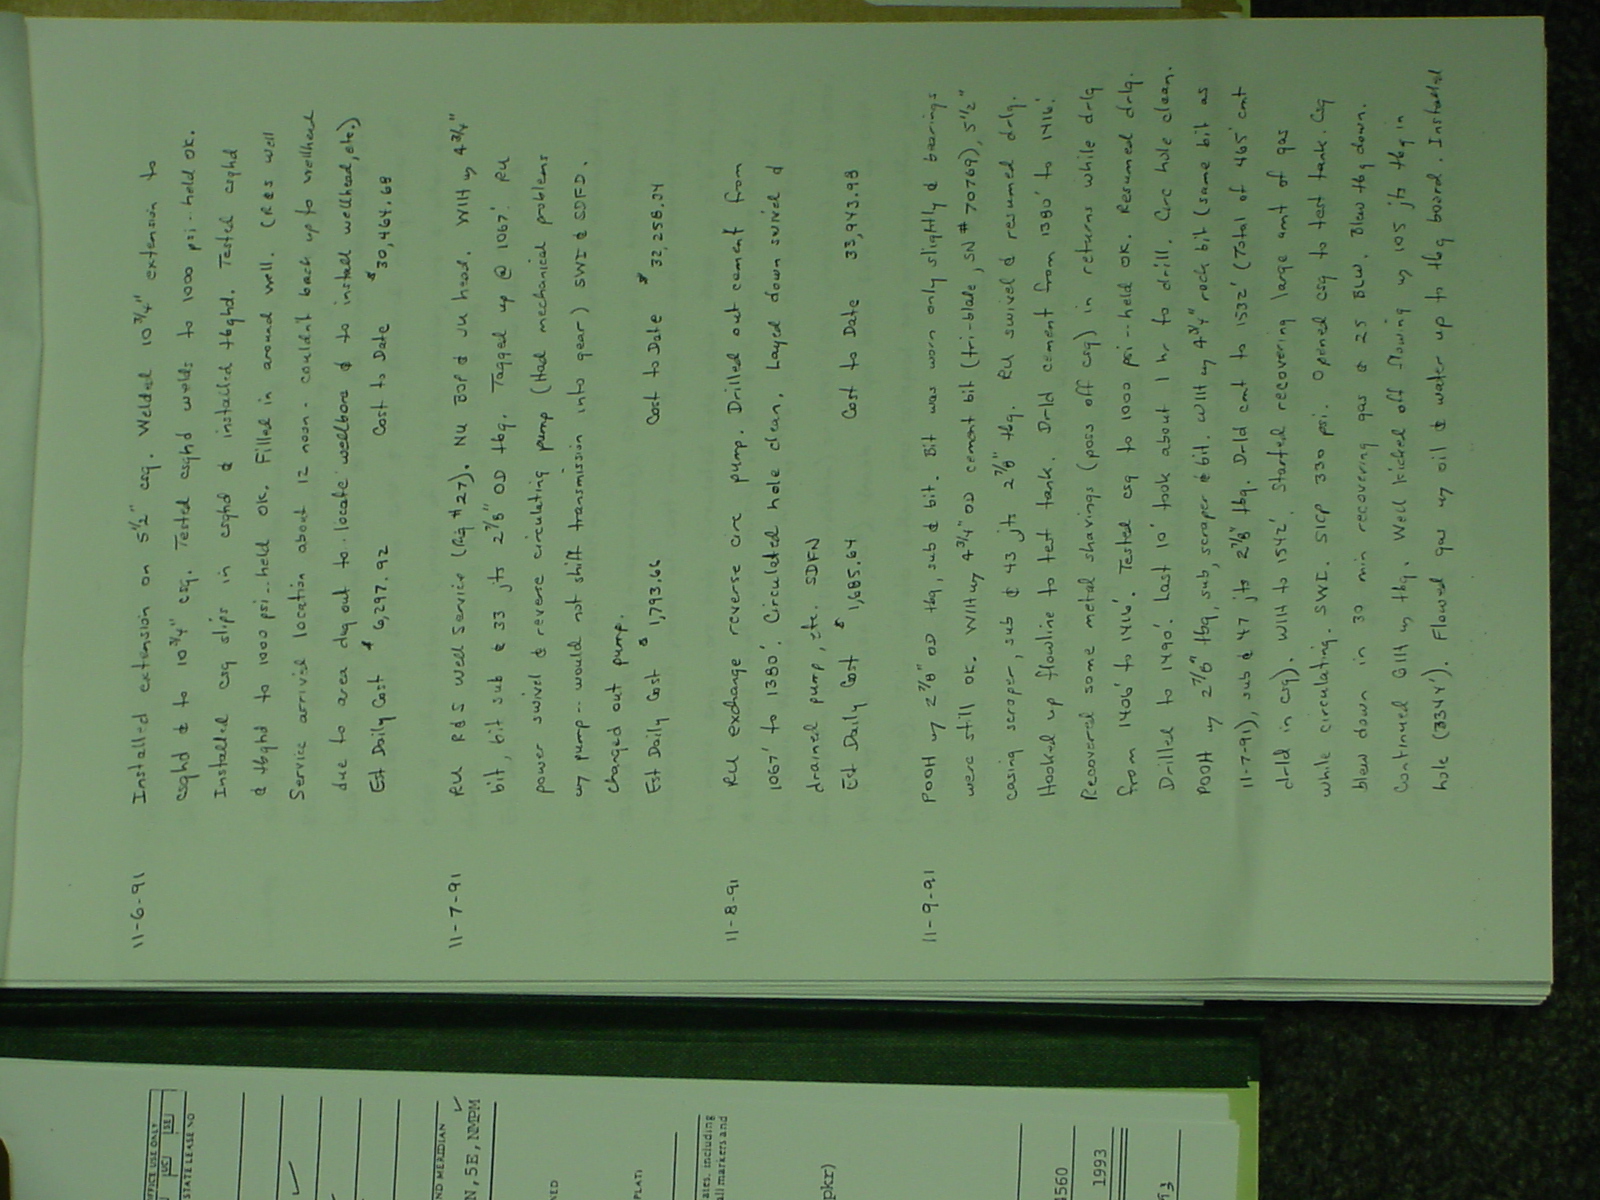 11-6-91 Installed extension on 5½" csg. Welded 10¾" extension to
csghd & to 10¾" csg. Tested csghd welds to 1000 psi--held OK.
Installed csg slips in csghd & installed tbghd. Tested csghd
& tbghd to 1000 psi--held OK. Filled in around well. (R&S Well
Service arrived location about 12 noon - couldn't back up to wellhead
due to area dug out to locate wellbore & to install wellhead, etc.)
Est Daily Cost $ 6,297.92 Cost to Date $ 30,464.68
11-7-91 RU R&S Well Service (Rig #27). NU BOP & JU head. WIH w/ 4¾"
bit, bit sub & 33 jts 2⅞" OD tbg. Tagged up @ 1067'. RU
power swivel & reverse circulating pump (Had mechanical problems
w/ pump -- would not shift transmission into gear) SWI & SDFD.
Changed out pump.
Est Daily Cost $ 1,793.66 Cost to Date $ 32,258.34
11-8-91 RU exchange reverse circ pump. Drilled out cement from
1067' to 1380'. Circulated hole clean, Layed down swivel &
drained pump, etc. SDFN
Est Daily Cost $ 1,685.64 Cost to Date 33,943.98
11-9-91 POOH w/ 2⅞" OD tbg, sub & bit. Bit was worn only slightly & bearings
were still OK. WIH w/ 4¾" OD cement bit (tri-blade, SN # 70769), 5½"
casing scraper, sub & 43 jts 2⅞" tbg. RU swivel & resumed drlg.
Hooked up flowline to test tank. Drld cement from 1380' to 1416'.
Recovered some metal shavings (poss off csg) in returns while drlg
from 1406' to 1416'. Tested csg to 1000 psi--held OK. Resumed drlg.
Drilled to 1490'. Last 10' took about 1 hr to drill. Circ hole clean.
POOH w/ 2⅞" tbg, sub, scraper & bit. WIH w/ 4¾" rock bit (same bit as
11-7-91), sub & 47 jts 2⅞" tbg. Drld cmt to 1532' (Total of 465' cmt
drld in csg). WIH to 1542'. Started recovering large amt of gas
while circulating. SWI. SICP 330 psi. Opened csg to test tank. Csg
blew down in 30 min recovering gas & 25 BLW. Blew tbg down.
Continued GIH w/ tbg. Well kicked off flowing w/ 105 jts tbg in
hole (3344'). Flowed gas w/ oil & water up to tbg board. Installed
OFFICE USE ONLY
UC SE
STATE LEASE NO
ND MERIDIAN
N, 5E, NMPM
NED
PLAT:
ates, including
all markers and
pkr)
1993